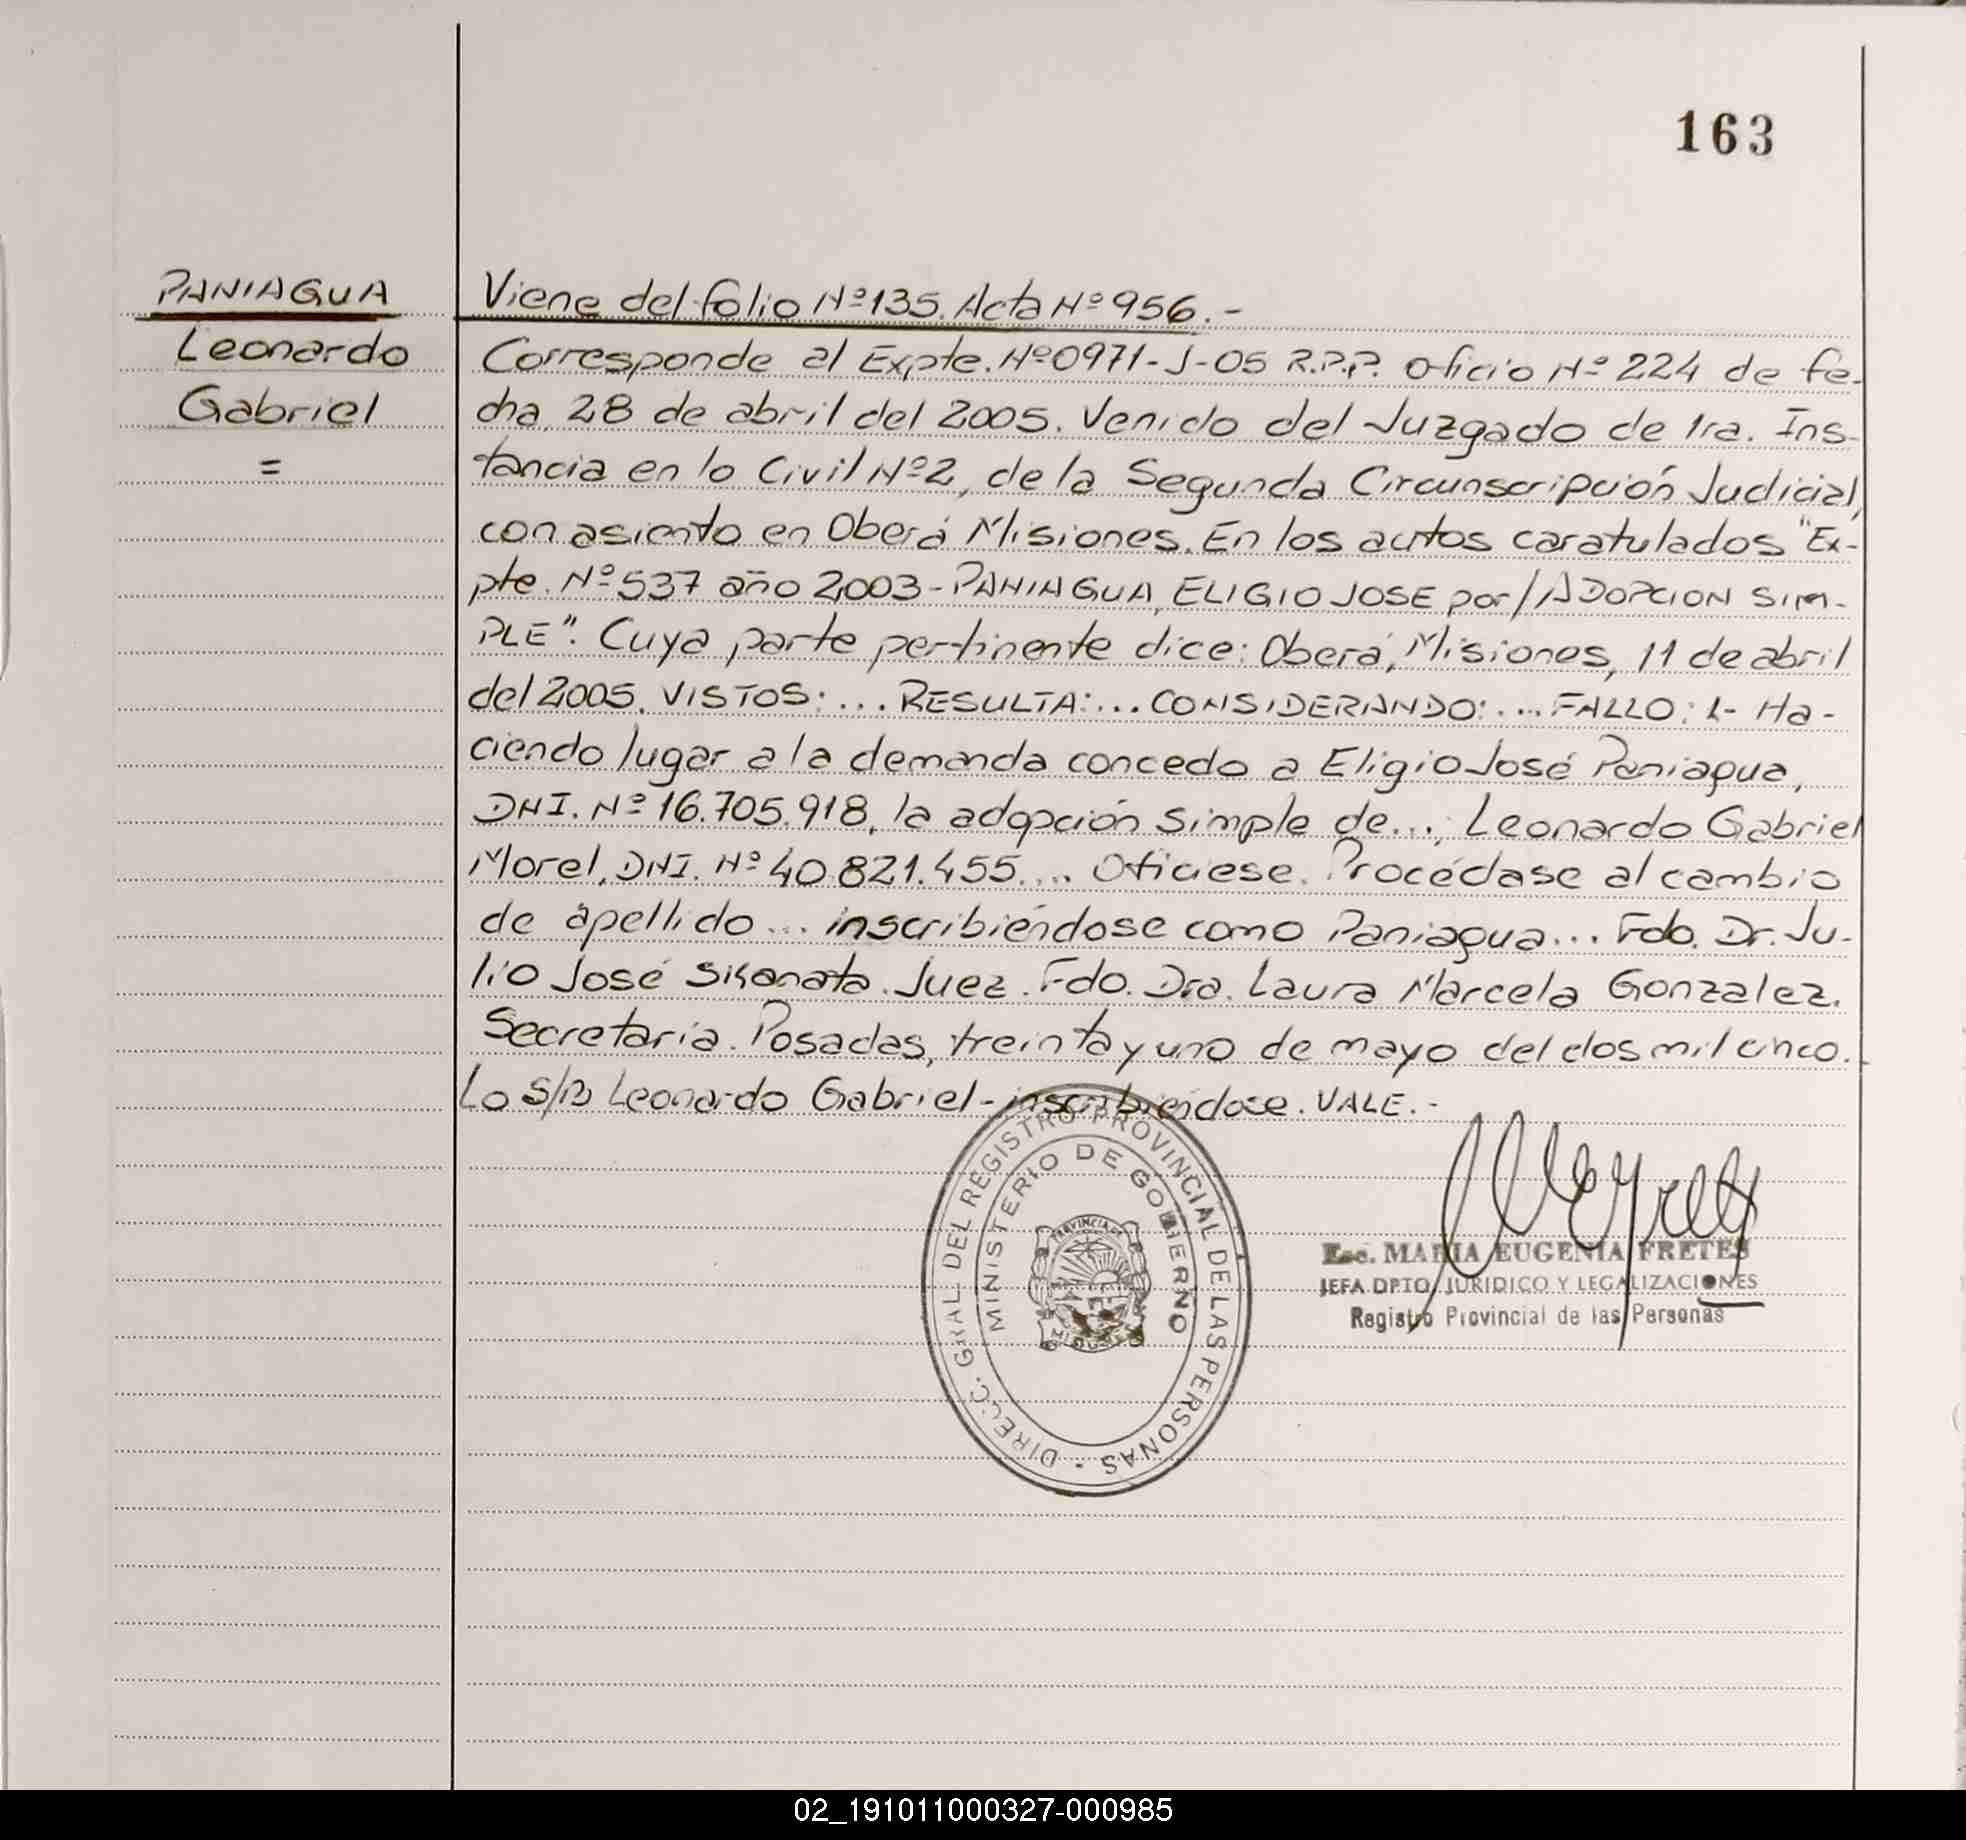 163
PANIAGUA
Leonardo
Gabriel
=
Viene del folio Nº 135. Acta Nº 956.-
Corresponde al Expte. Nº 0971-J-05 R.P.P. Oficio Nº 224 de fe-
cha 28 de abril del 2005. Venido del Juzgado de 1ra. Ins-
tancia en lo Civil Nº 2, de la Segunda Circunscripción Judicial,
con asiento en Oberá Misiones. En los autos caratulados "Ex-
pte. Nº 537 año 2003 - PANIAGUA, ELIGIO JOSE por/ADOPCION SIM-
PLE". Cuya parte pertinente dice: Oberá, Misiones, 11 de abril
del 2005. VISTOS: ... RESULTA: ... CONSIDERANDO: ... FALLO: 1- Ha-
ciendo lugar a la demanda concedo a Eligio José Paniagua,
DNI. Nº 16.705.918, la adopción simple de..., Leonardo Gabriel
Morel, DNI. Nº 40.821.455.... Ofíciese. Procédase al cambio
de apellido... inscribiéndose como Paniagua... Fdo. Dr. Ju-
lio José Sikanata. Juez. Fdo. Dra. Laura Marcela Gonzalez.
Secretaria. Posadas, treinta y uno de mayo del dos mil cinco.
Lo S/B Leonardo Gabriel - inscribiéndose. VALE.-
DIRECC. GRAL. DEL REGISTRO PROVINCIAL DE LAS PERSONAS
MINISTERIO DE GOBIERNO
PROVINCIA DE
MISIONES
Esc. MARIA EUGENIA FRETES
JEFA DPTO. JURIDICO Y LEGALIZACIONES
Registro Provincial de las Personas
02_191011000327-000985